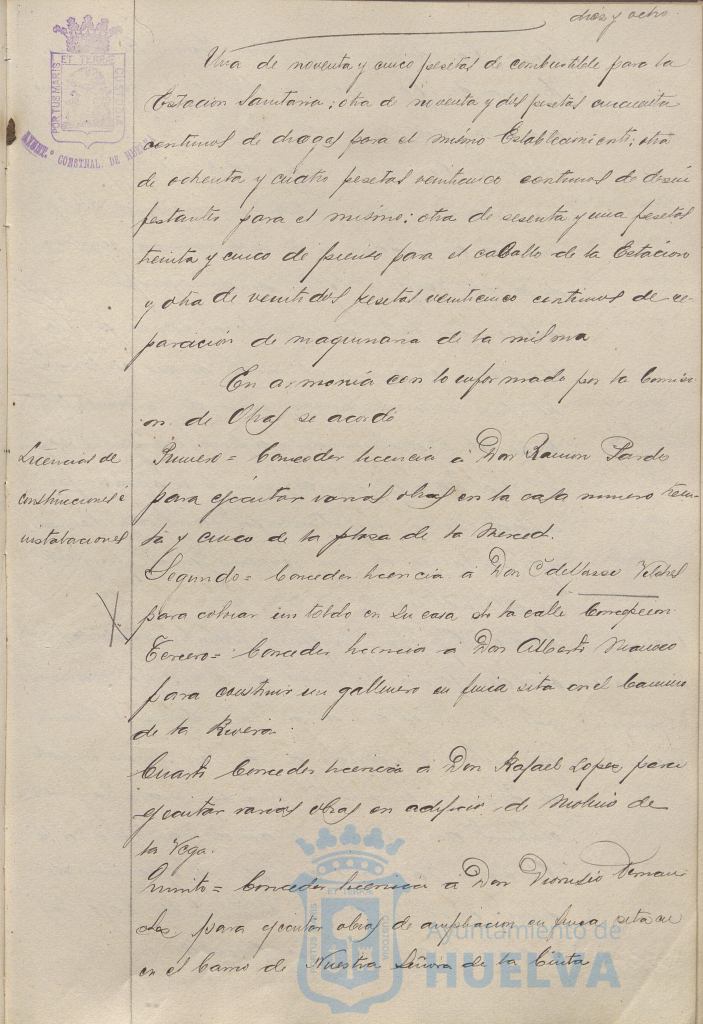 diez y ocho
Una de noventa y cinco pesetas de combustible para la
Estacion Sanitaria; otra de noventa y dos pesetas cincuenta
centimos de drogas para el mismo Establecimiento; otra
de ochenta y cuatro pesetas veinticinco centimos de desin
festantes para el mismo; otra de sesenta y una pesetas
treinta y cinco de pienso para el caballo de la Estacion
y otra de veintidos pesetas veinticinco centimos de re-
paración de maquinaria de la misma
En armonía con lo informado por la Comisi-
on de Obras se acordó
Licencias de
construcciones é
instalaciones
Primero = Conceder licencia á Don Ramon Pardo
para ejecutar varias obras en la casa numero trein-
ta y cinco de la plaza de la Merced.
Segundo = Conceder licencia á Don
para colocar un toldo en su casa de la calle Concepcion
Tercero = Conceder licencia á Don Alberto
para construir un gallinero en finca sita en el Camino
de la Rivera.
Cuarto Conceder licencia á Don Rafael Lopez para
ejecutar varias obras en edificio de Molino de
la Vega.
Quinto = Conceder licencia á Don Dionisio Fernan
dez para ejecutar obras de ampliacion en finca sita en
en el barrio de Nuestra Señora de la Cinta
PORTUS MARIS ET TERRE CUSTODIA
AYUNT. CONSTNAL. DE HUELVA
Ayuntamiento de
HUELVA